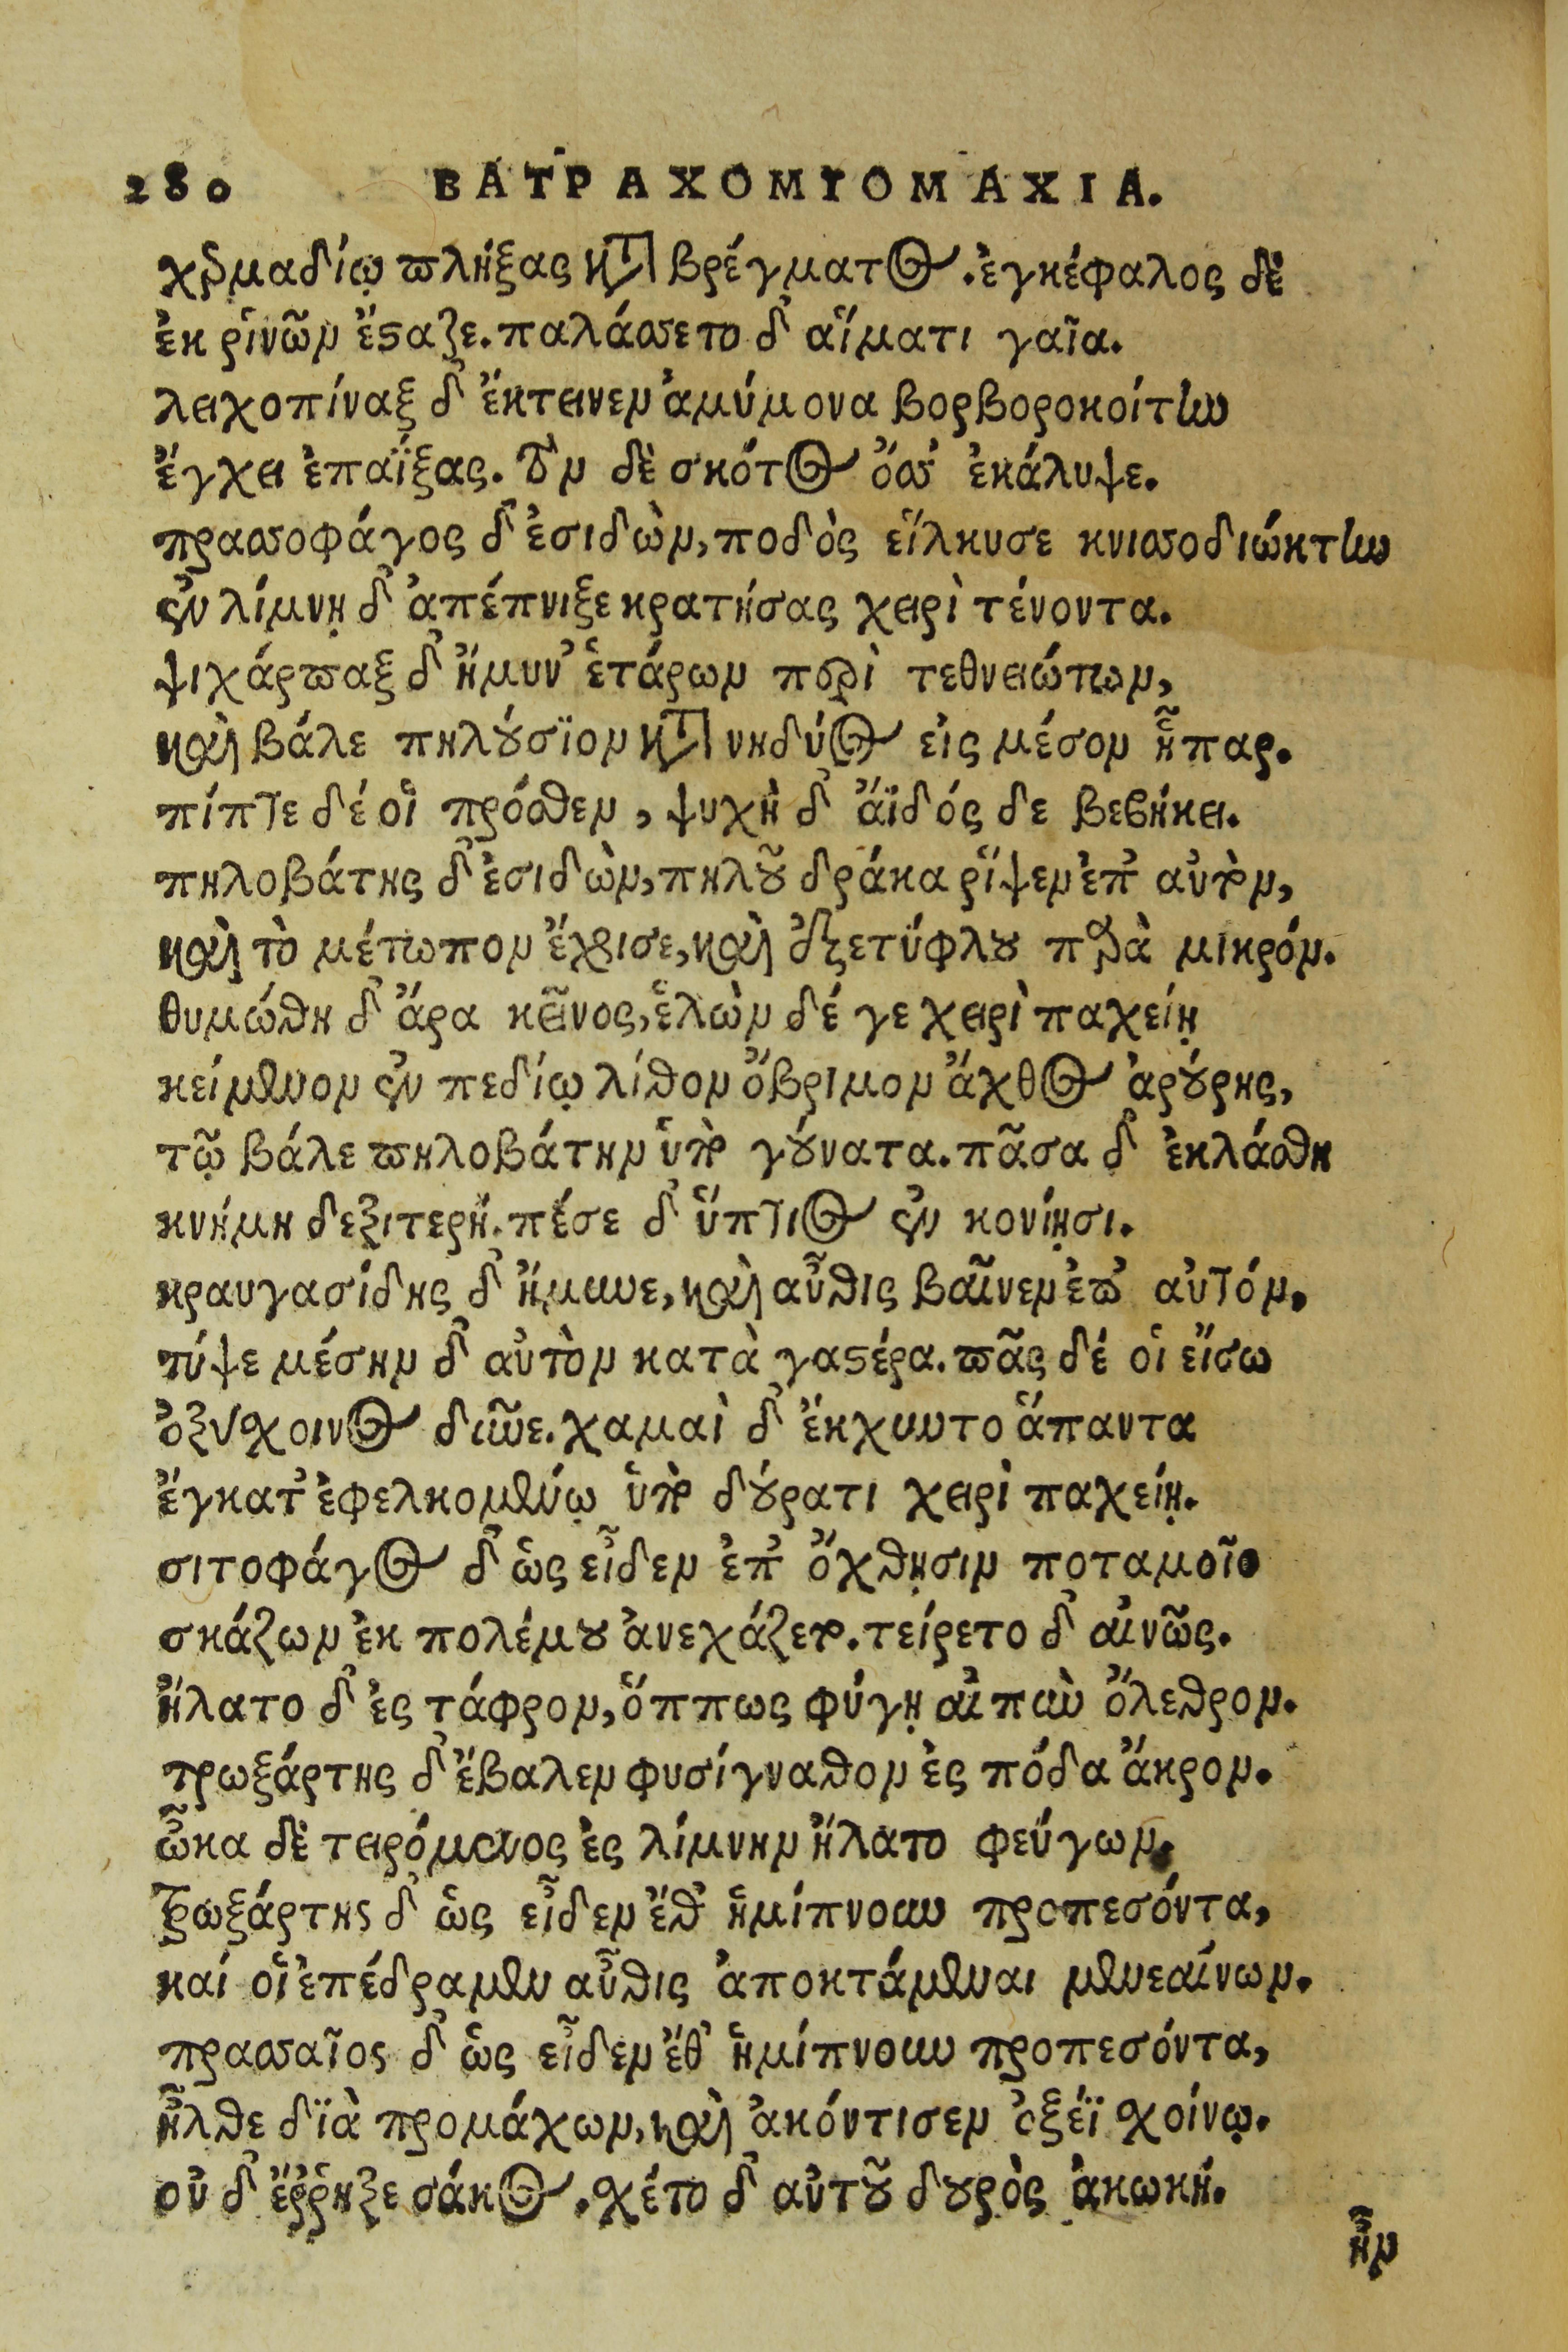 280 ΒΑΤΡΑΧΟΜΥΟΜΑΧΙΑ.
χερμαδίῳ πλήξας κατὰ βρέγματος. ἐγκέφαλος δὲ
ἐκ ῥινῶν ἔσταζε. παλάσσετο δ' αἵματι γαῖα.
λειχοπίναξ δ' ἔκτεινεν ἀμύμονα βορβοροκοίτην
ἔγχει ἐπαΐξας. τὸν δὲ σκότος ὄσσ' ἐκάλυψε.
πρασσοφάγος δ' ἐσιδὼν, ποδὸς εἵλκυσε κνισσοδιώκτην
ἐν λίμνῃ δ' ἀπέπνιξε κρατήσας χειρὶ τένοντα.
ψιχάρπαξ δ' ἤμυν' ἑτάρων περὶ τεθνειώτων,
καὶ βάλε πηλούσϊον κατὰ νηδύος εἰς μέσον ἧπαρ.
πίπτε δέ οἱ πρόσθεν, ψυχὴ δ' ἄϊδός δε βεβήκει.
πηλοβάτης δ' ἐσιδὼν, πηλοῦ δράκα ῥίψεν ἐπ' αὐτὸν,
καὶ τὸ μέτωπον ἔχρισε, καὶ ἐξετύφλου παρὰ μικρόν.
θυμώθη δ' ἄρα κεῖνος, ἑλὼν δέ γε χειρὶ παχείῃ
κείμενον ἐν πεδίῳ λίθον ὄβριμον ἄχθος ἀρούρης,
τῷ βάλε πηλοβάτην ὑπὸ γούνατα. πᾶσα δ' ἐκλάσθη
κνήμη δεξιτερή. πέσε δ' ὕπτιος ἐν κονίῃσι.
κραυγασίδης δ' ἤμυνε, καὶ αὖθις βαῖνεν ἐπ' αὐτόν,
τύψε μέσην δ' αὐτὸν κατὰ γαστέρα. πᾶς δέ οἱ εἴσω
ὀξύσχοινος δῦνε. χαμαὶ δ' ἔκχυντο ἅπαντα
ἔγκατ' ἐφελκομένῳ ὑπὸ δούρατι χειρὶ παχείῃ.
σιτοφάγος δ' ὡς εἶδεν ἐπ' ὄχθῃσιν ποταμοῖο
σκάζων ἐκ πολέμου ἀνεχάζετο. τείρετο δ' αἰνῶς.
ἥλατο δ' ἐς τάφρον, ὅππως φύγῃ αἰπὺν ὄλεθρον.
τρωξάρτης δ' ἔβαλεν φυσίγναθον ἐς πόδα ἄκρον.
ὦκα δὲ τειρόμενος ἐς λίμνην ἥλατο φεύγων.
τρωξάρτης δ' ὡς εἶδεν ἔθ' ἡμίπνουν προπεσόντα,
καί οἱ ἐπέδραμεν αὖθις ἀποκτάμεναι μενεαίνων.
πρασσαῖος δ' ὡς εἶδεν ἔθ' ἡμίπνουν προπεσόντα,
ἦλθε δϊὰ προμάχων, καὶ ἀκόντισεν ὀξέϊ σχοίνῳ.
οὐ δ' ἔῤῥηξε σάκος. σχέτο δ' αὐτοῦ δουρὸς ἀκωκή.
ἦν